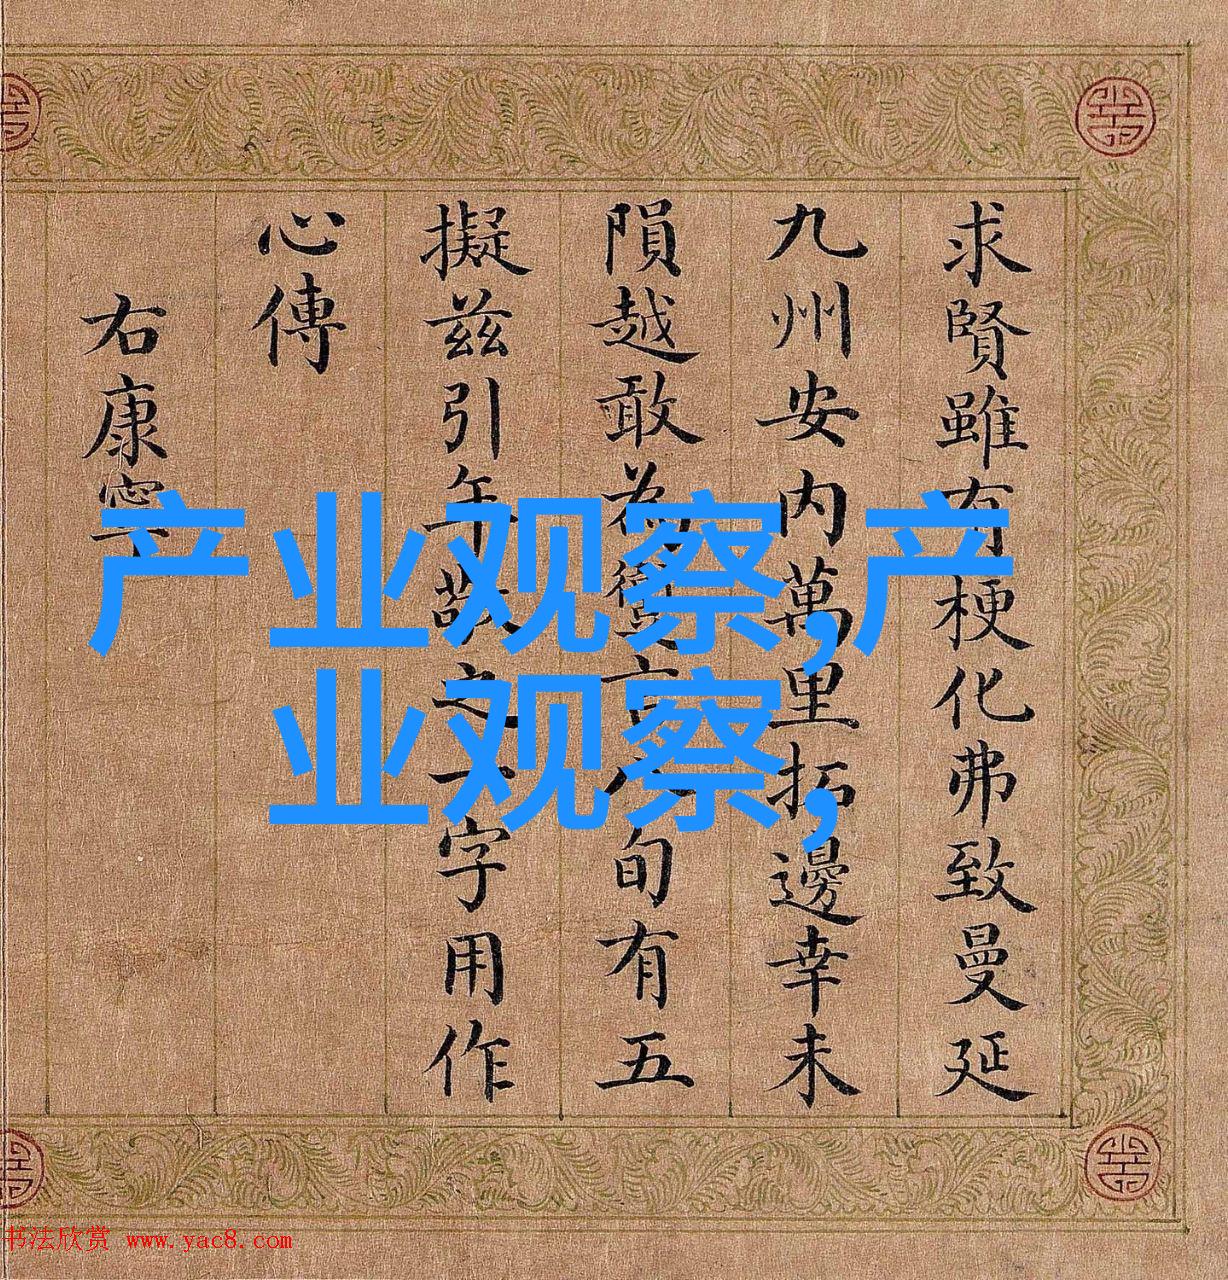 求賢雖有梗化弗致曼延
九州安内萬里拓邊幸未
隕越敢為旬有五
擬兹引年敬之一字用作
心傳
右康寧
产业观察,产
业观察,
书法欣赏 www.yac8.com